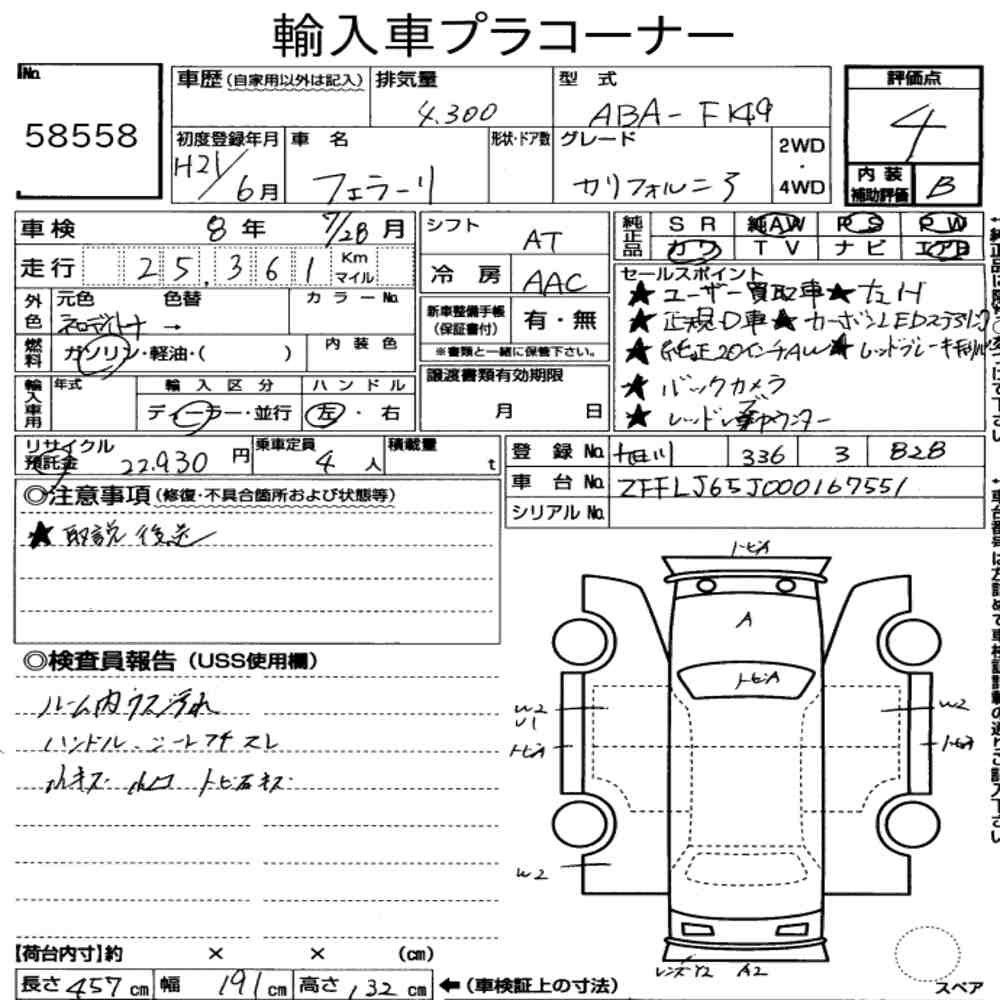 輸入車プラコーナー
No.
58558
車歴 (自家用以外は記入) 排気量 型式
4.300 ABA-FK49
評価点
4
初度登録年月 車名 形状・ドア数 グレード 2WD・4WD
H21/6月 フェラーリ カリフォルニア
内装補助評価 B
車検 8年 7/28月
シフト AT
純正品 SR 純AW PS PW
カワ TV ナビ エアB
走行 25.361 Km マイル
冷房 AAC
セールスポイント
★ユーザー買取車★左H
★正規D車★カーボンLEDステアリング
★純正20インチAW★レッドブレーキキャリパー
★バックカメラ
外色 元色 色替 カラーNo.
ネロデイトナ →
新車整備手帳 (保証書付) 有・無
※書類と一緒に保管下さい。
燃料 ガソリン・軽油・( ) 内装色
譲渡書類有効期限
月 日
輸入車用 年式 輸入区分 ハンドル
ディーラー・並行 左・右
リサイクル預託金 22.930円 乗車定員 4人 積載量 t
登録No. 旭川 336 3 828
車台No. ZFFLJ65J000167551
シリアルNo.
◎注意事項 (修復・不具合箇所および状態等)
★取説後送
◎検査員報告 (USS使用欄)
ルーム内ウス汚れ
ハンドル.シートフチスレ
小キズ 小凹 トビ石キズ
トビA
A
トビA
W2
U1
トビA
W2
トビA
W2
レンズY2 A2
スペア
【荷台内寸】約 × × (cm)
長さ 457 cm 幅 191 cm 高さ 132 cm ←(車検証上の寸法)